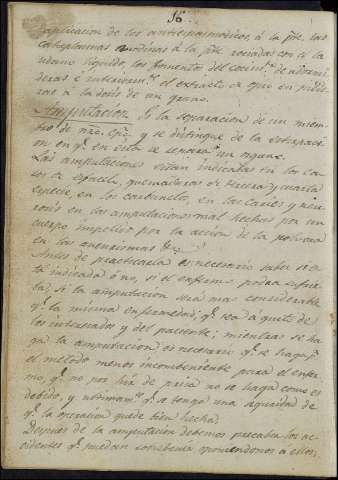 16.
aplicacion de los antiespasmodicos, á la pte. las
cataplasmas anodinas á la pte. rociadas con el la
udano liquido, los fomentos del cocimto. de adormi
deras é interiormte. el extracto de opio en pildo
ras a la dosis de un grano.
Amputacion. Es la separacion de un miem
bro de nro. Cpo. y se distingue de la extirpaci
on en qe. en esta se separa un organo.
Las amputaciones estan indicadas en los ca
sos de esfacelo, quemaduras de tercera y cuarta
especie, en los carbuncos, en las caries y necr
rosis en las amputaciones mal hechas por un
cuerpo impelido por la accion de la polvora
en los aneurismas &a.
Antes de practicarla es necesario saber si es
tá indicada ó no, si el enfermo podra sufrir
la, si la amputacion sera mas considerable
qe. la misma enfermedad; qe. sea á gusto de
los interesados y del paciente; mientras se ha
ga la amputacion es necesario qe. se haga pr.
el metodo menos incombeniente para el enfer
mo, qe. no por hir de prisa no se haga como es
debido, y ultimamte. qe. se tenga una seguridad de
qe. la operacion quede bien hecha.
Despues de la amputacion debemos precaber los ac
cidentes qe. puedan sobrebenir oponiendonos a ellos,